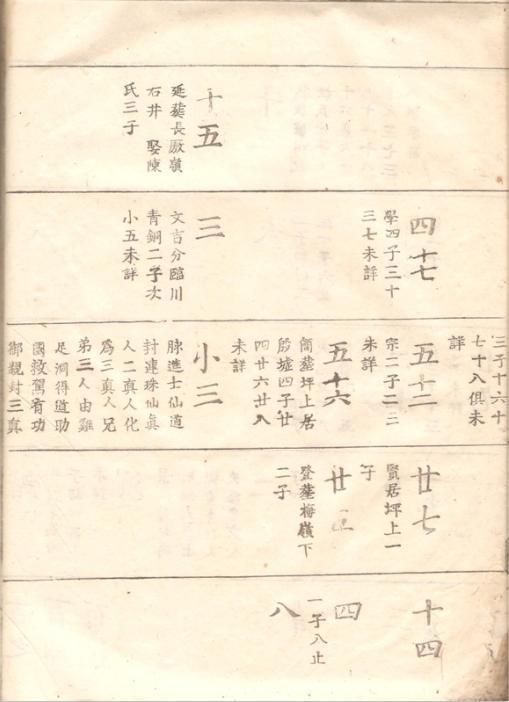 十五
延葬長厫嶺
石井 娶陳
氏三子
四十七
學四子三十
三七未詳
三
文吉分臨川
青銅二子次
小五未詳
三子十六十
七十八俱未
詳
五十二
宗二子二三
未詳
五十六
簡葬坪上居
殷墟四子廿
四廿六廿八
未詳
小三
脉進士仙道
封連珠仙真
人二真人化
為三真人兄
弟三人由難
足洞得道助
國救駕有功
御親封三真
廿七
賢居坪上一
子
廿一
登葬梅嶺下
二子
十四
四
一子八止
八